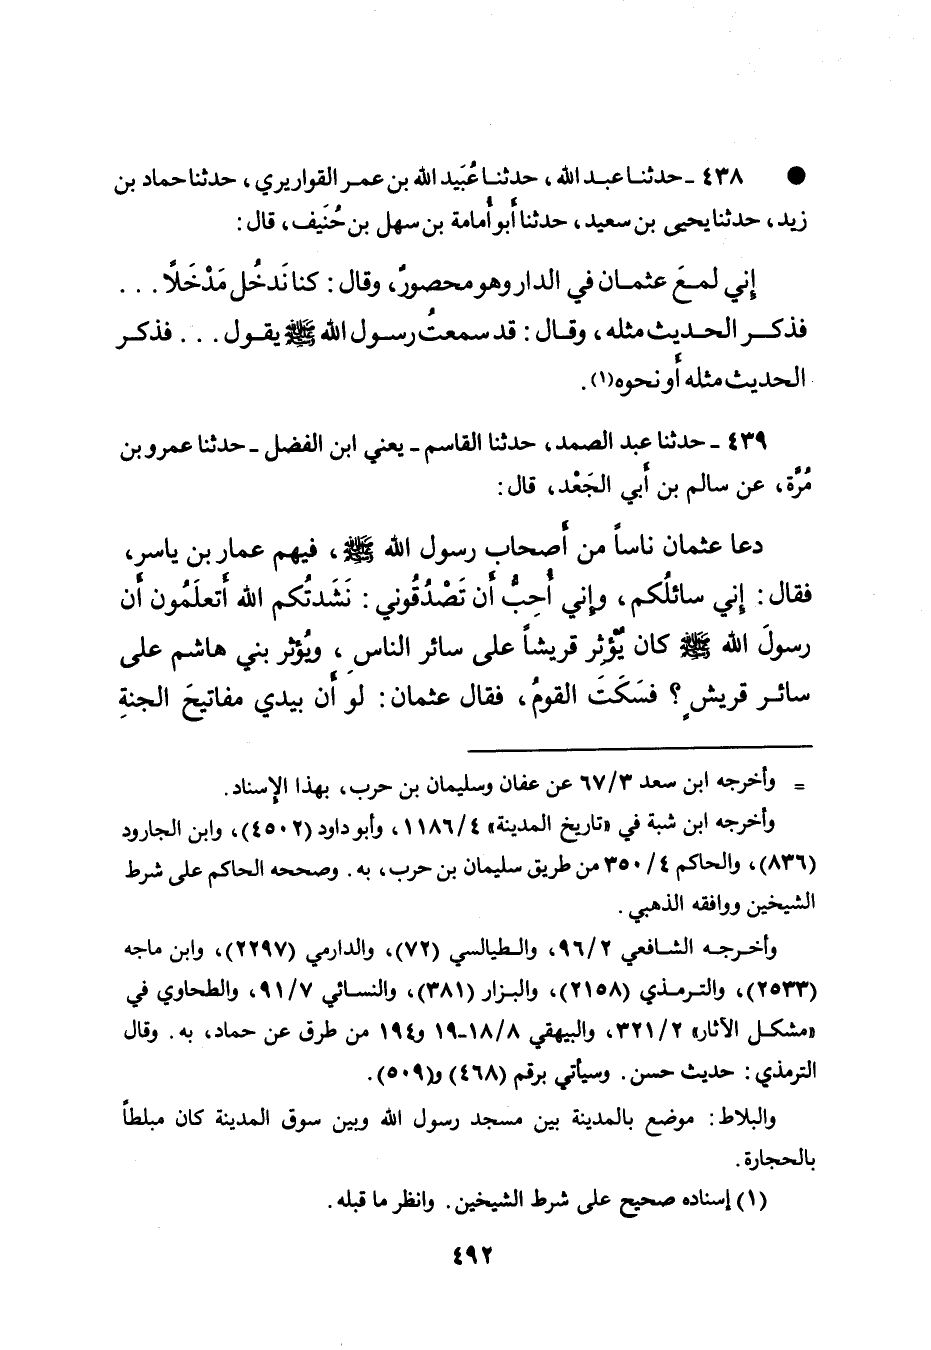 ● ٤٣٨ ـ حدثنا عبد الله، حدثنا عُبَيد الله بن عمر القواريري، حدثنا حماد بن
زيد، حدثنا يحيى بن سعيد، حدثنا أبو أُمامة بن سهل بن حُنَيف، قال:
إني لمعَ عثمان في الدار وهو محصورٌ، وقال: كنا نَدخُل مَدْخَلًا . . .
فذكر الحديث مثله، وقال: قد سمعتُ رسول الله ﷺ يقول . . . فذكر
الحديث مثله أو نحوه(١).
٤٣٩ ـ حدثنا عبد الصمد، حدثنا القاسم ـ يعني ابن الفضل ـ حدثنا عمرو بن
مُرَّة، عن سالم بن أبي الجَعْد، قال:
دعا عثمان ناساً من أصحاب رسول الله ﷺ، فيهم عمار بن ياسر،
فقال: إني سائلُكم، وإني أُحِبُّ أن تَصْدُقُوني: نَشَدتُكم الله أَتعلَمُون أن
رسولَ الله ﷺ كان يُؤْثِر قريشاً على سائر الناسِ، ويُؤثر بني هاشم على
سائر قريشٍ؟ فسَكَتَ القومُ، فقال عثمان: لو أن بيدي مفاتيحَ الجنةِ
= وأخرجه ابن سعد ٦٧/٣ عن عفان وسليمان بن حرب، بهذا الإسناد.
وأخرجه ابن شبة في «تاريخ المدينة» ١١٨٦/٤، وأبو داود (٤٥٠٢)، وابن الجارود
(٨٣٦)، والحاكم ٣٥٠/٤ من طريق سليمان بن حرب، به. وصححه الحاكم على شرط
الشيخين ووافقه الذهبي.
وأخرجه الشافعي ٩٦/٢، والطيالسي (٧٢)، والدارمي (٢٢٩٧)، وابن ماجه
(٢٥٣٣)، والترمذي (٢١٥٨)، والبزار (٣٨١)، والنسائي ٩١/٧، والطحاوي في
«مشكل الآثار» ٣٢١/٢، والبيهقي ١٨/٨ـ١٩ و١٩٤ من طرق عن حماد، به. وقال
الترمذي: حديث حسن. وسيأتي برقم (٤٦٨) و(٥٠٩).
والبلاط: موضع بالمدينة بين مسجد رسول الله وبين سوق المدينة كان مبلطاً
بالحجارة.
(١) إسناده صحيح على شرط الشيخين. وانظر ما قبله.
٤٩٢